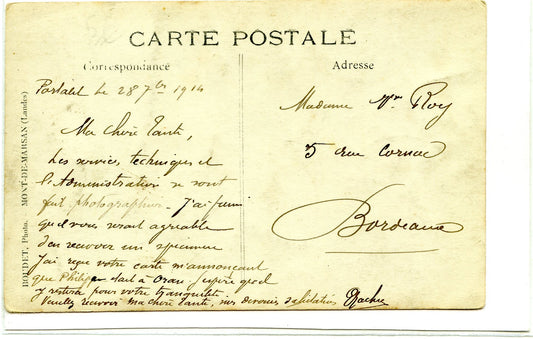 CARTE POSTALE
Correspondance
Adresse
le 28 7bre 1914
Ma chère Tante,
Les services techniques et
l'Administration se sont
fait photographier. J'ai pensé
qu'il vous serait agréable
d'en recevoir un specimen
J'ai reçu votre carte m'annonçant
que Philippe était à Oran j'espère qu'il
y restera pour votre tranquilité.
Veuillez recevoir ma chère Tante, mes
Madame Vve Roy
5 rue Cornac
Bordeaux
BOUDET, Photo. MONT-DE-MARSAN (Landes)